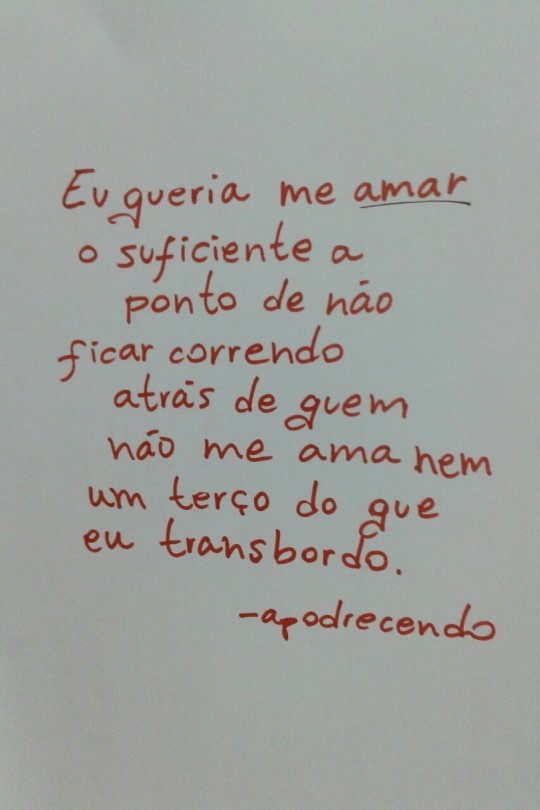 Eu queria me amar
o suficiente a
ponto de não
ficar correndo
atrás de quem
não me ama nem
um terço do que
eu transbordo.
-apodrecendo